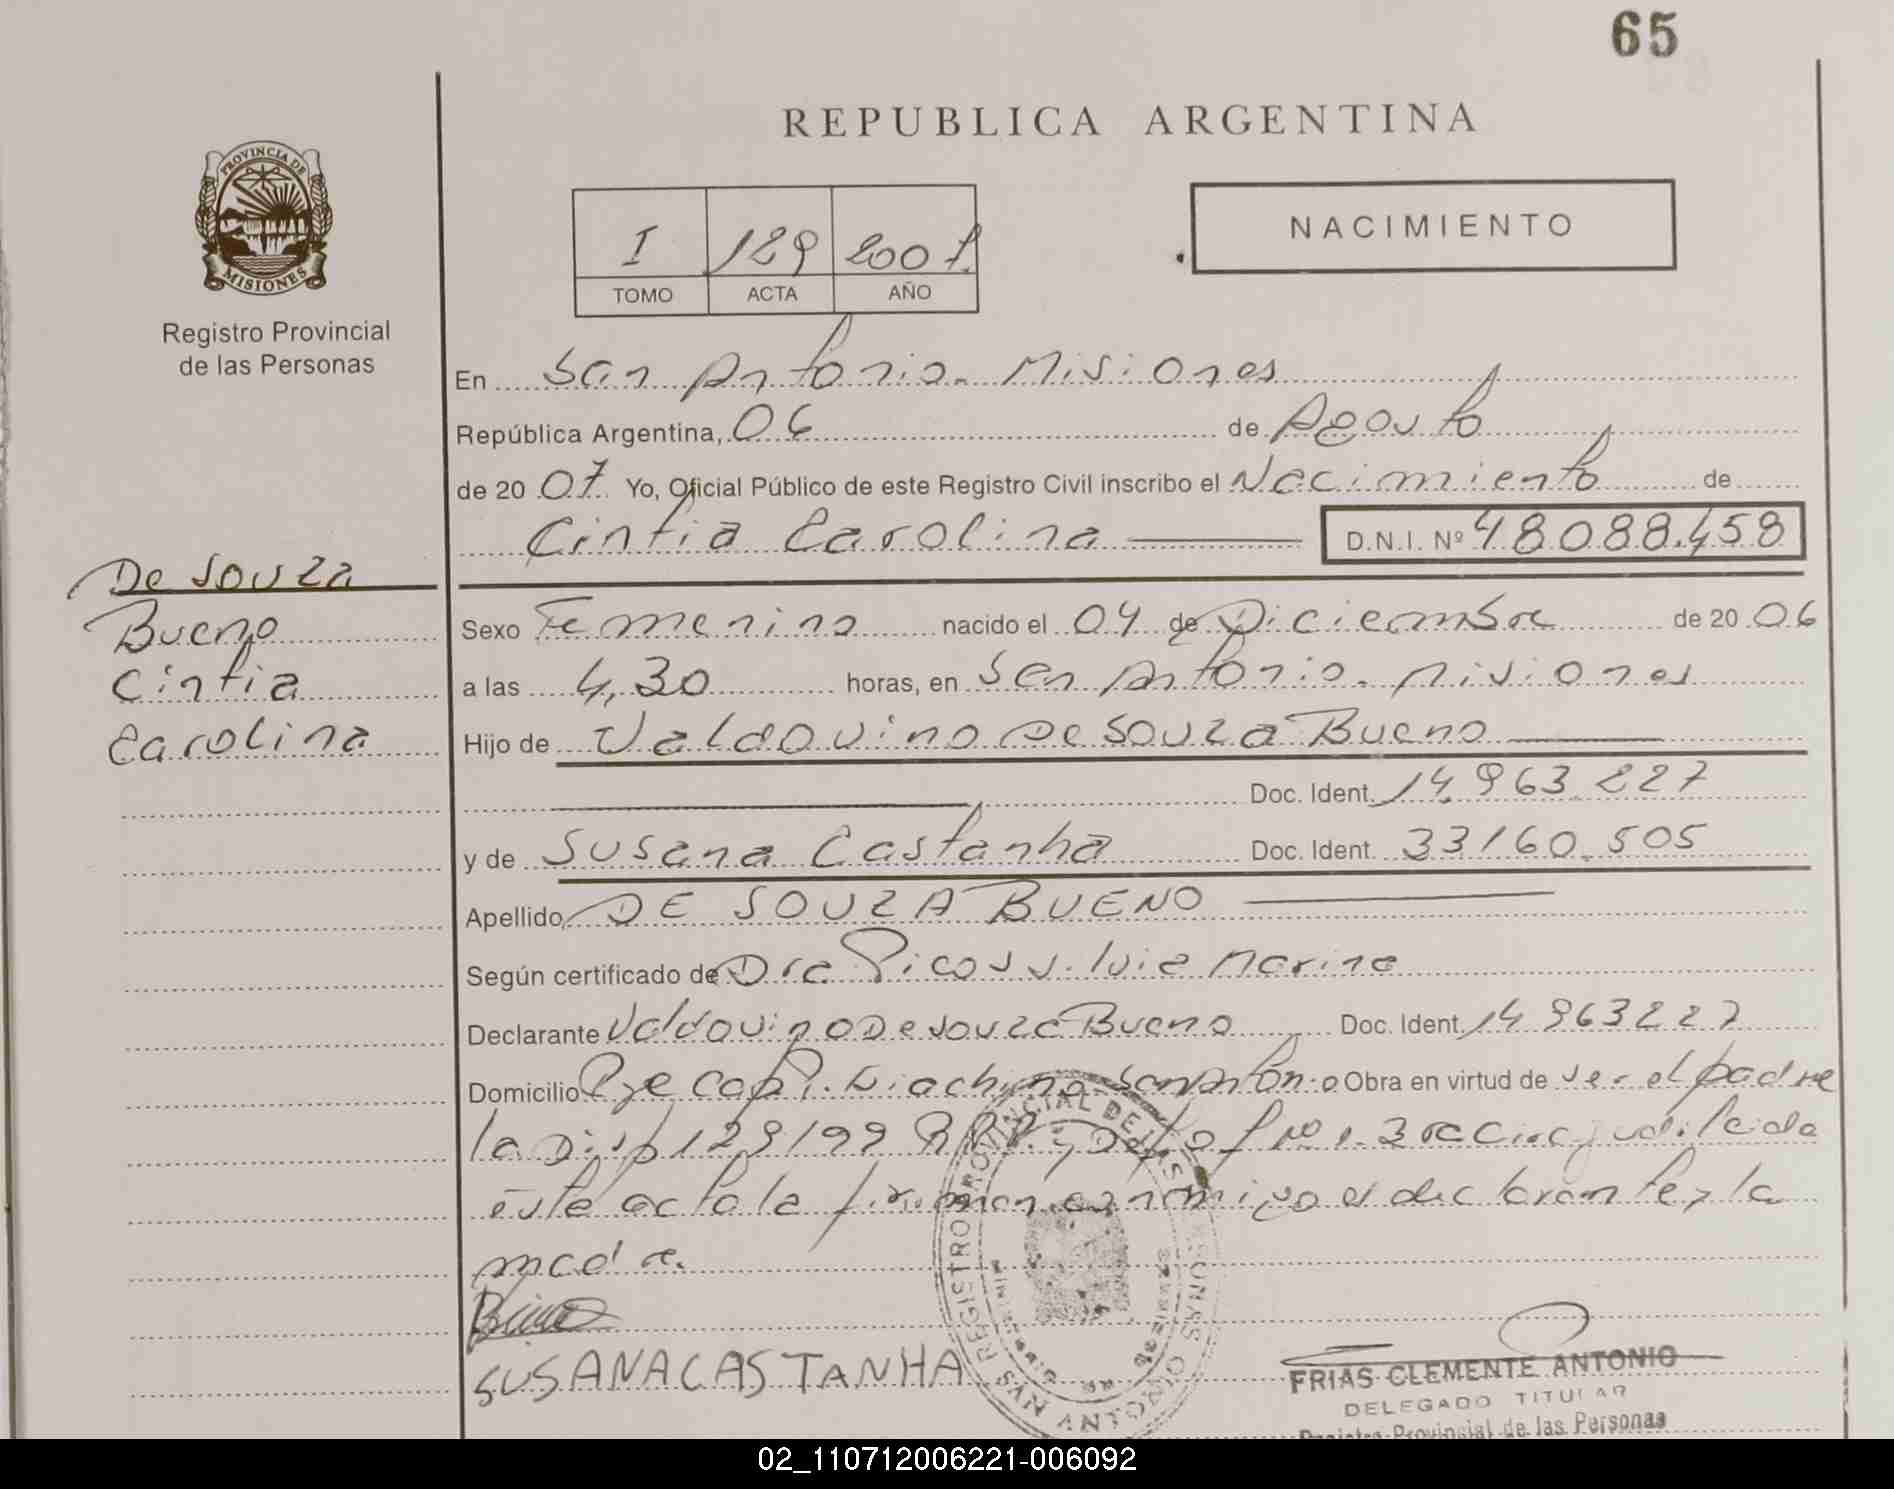 65
REPUBLICA ARGENTINA
PROVINCIA DE
MISIONES
Registro Provincial
de las Personas
I 129 2007.
TOMO ACTA AÑO
NACIMIENTO
En San Antonio. Misiones
República Argentina, 06 de Agosto
de 20 07. Yo, Oficial Público de este Registro Civil inscribo el Nacimiento de
Cintia Carolina D.N.I. Nº 48.088.458
De Souza
Bueno
Cintia
Carolina
Sexo Femenino nacido el 04 de Diciembre de 20 06
a las 4,30 horas, en San Antonio. Misiones
Hijo de Valdovino De Souza Bueno
Doc. Ident. 14.963.227
y de Susana Castanha Doc. Ident. 33160.505
Apellido, DE SOUZA BUENO
Según certificado de Dra Picossi. Marina
Declarante Valdovino De Souza Bueno Doc. Ident. 14963227
Domicilio San Antonio Obra en virtud de ser el padre
la Disp 129/99 R.P.P. y leida
este acta la firman conmigo el declarante y la
madre.
SUSANA CASTANHA
REGISTRO PROVINCIAL DE LAS PERSONAS
SAN ANTONIO
FRIAS CLEMENTE ANTONIO
DELEGADO TITULAR
Registro Provincial de las Personas
02_110712006221-006092